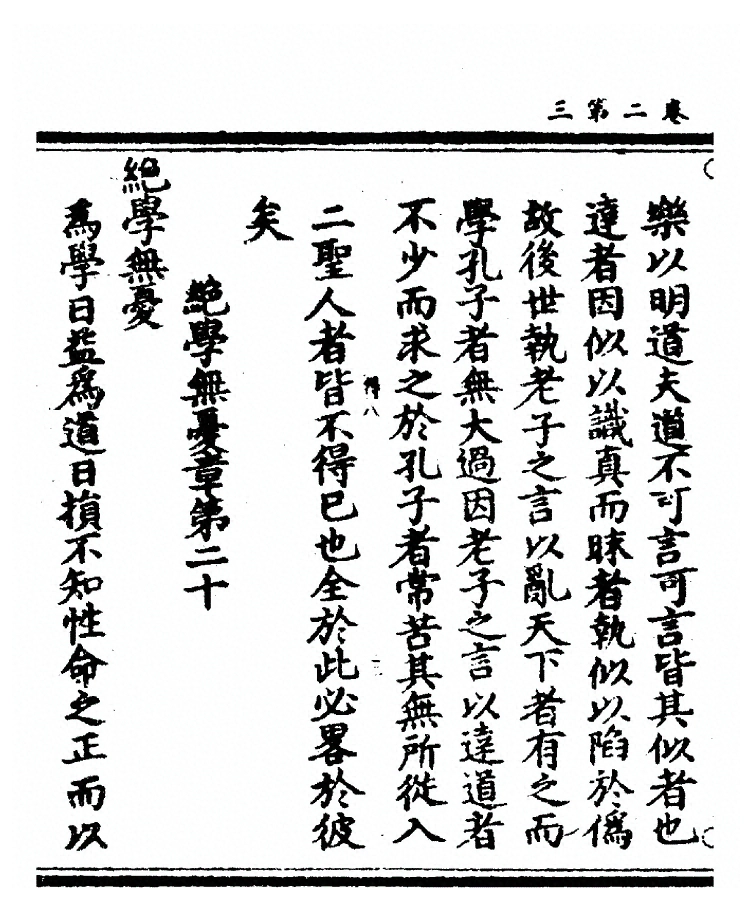 卷二第三
樂以明道夫道不可言可言皆其似者也
達者因似以識真而昧者執似以陷於僞
故後世執老子之言以亂天下者有之而
學孔子者無大過因老子之言以達道者
不少而求之於孔子者常苦其無所從入
得八
二聖人者皆不得已也全於此必畧於彼
矣
絕學無憂章第二十
絕學無憂
爲學日益爲道日損不知性命之正而以